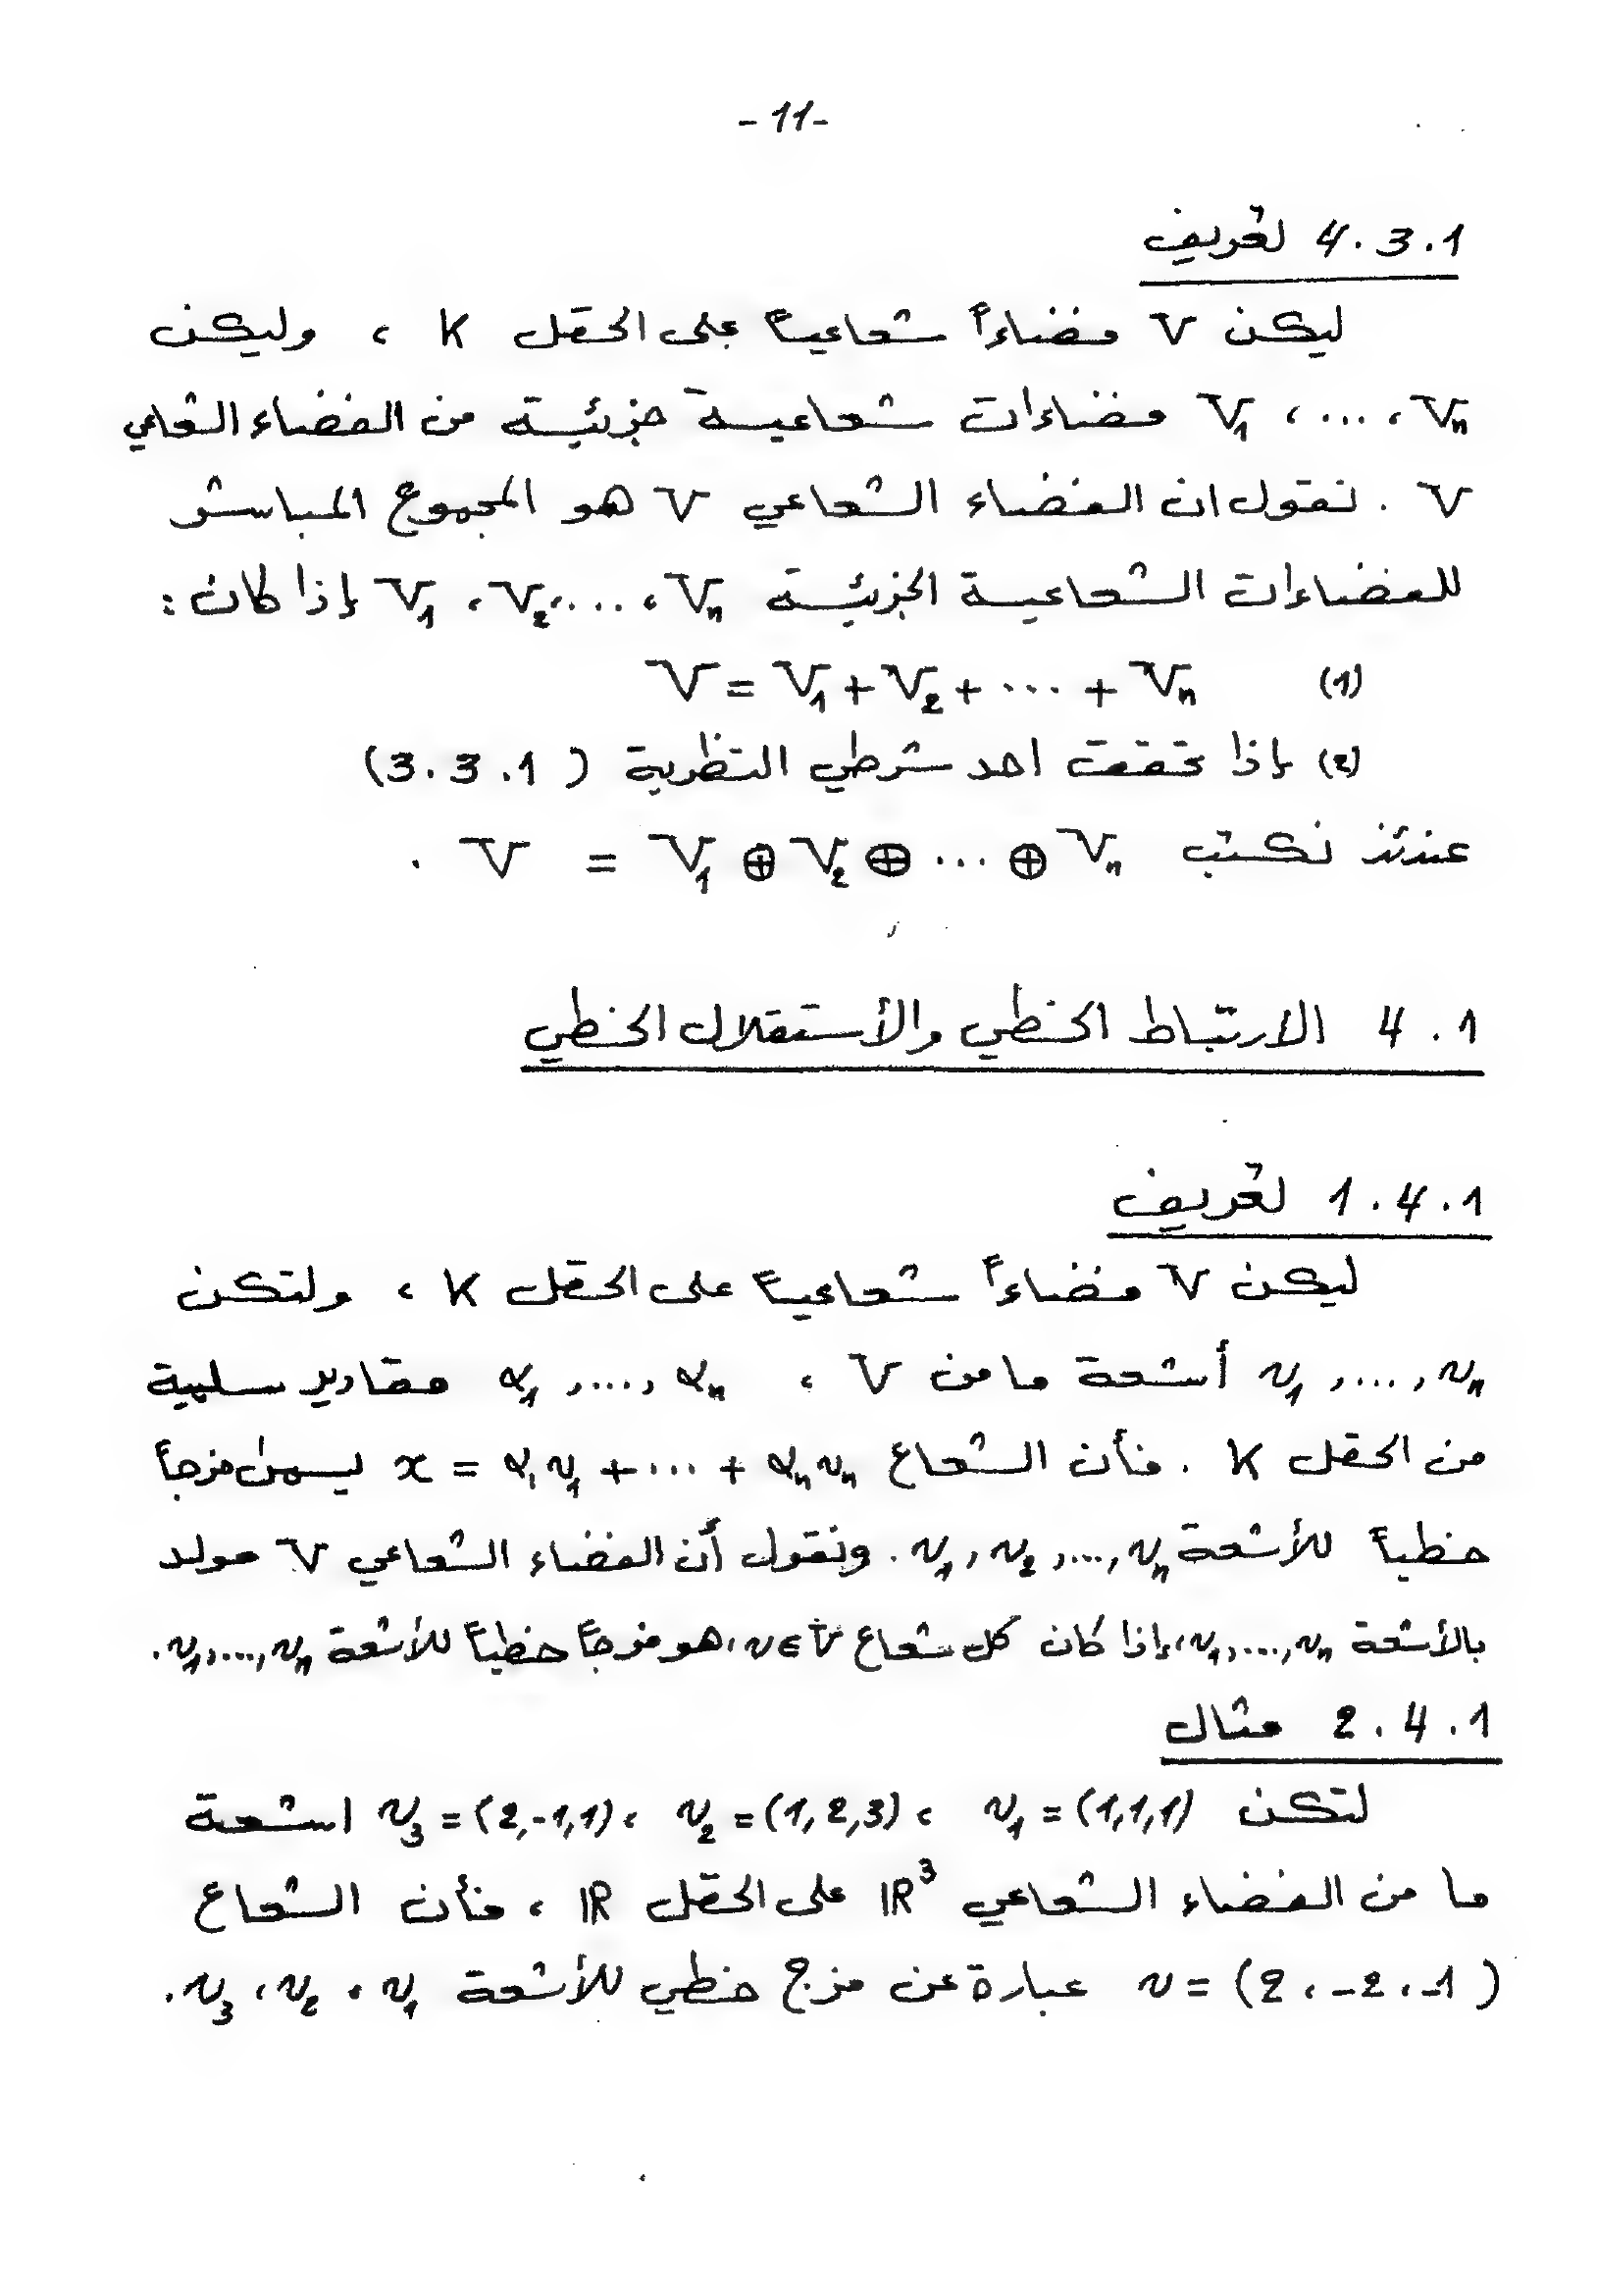 -11-
4.3.1 تعريف
ليكن V فضاءاً شعاعياً على الحقل K ، وليكن
V₁ ، ... ، Vₙ فضاءات شعاعية جزئية من الفضاء الشعاعي
V . نقول ان الفضاء الشعاعي V هو المجموع المباشر
للفضاءات الشعاعية الجزئية V₁ ، V₂ ، ... ، Vₙ إذا كان :
(1) V = V₁ + V₂ + ... + Vₙ
(2) إذا تحققت احد شرطي النظرية (3.3.1)
عندئذ نكتب V = V₁ ⊕ V₂ ⊕ ... ⊕ Vₙ .
4.1 الارتباط الخطي والأستقلال الخطي
1.4.1 تعريف
ليكن V فضاءاً شعاعياً على الحقل K ، ولتكن
v₁ , ... , vₙ أشعة ما من V ، α₁ , ... , αₙ مقادير سلمية
من الحقل K . فأن الشعاع x = α₁v₁ + ... + αₙvₙ يسمى مزجاً
خطياً للأشعة v₁ , v₂ , ... , vₙ . ونقول أن الفضاء الشعاعي V مولد
بالأشعة v₁ , ... , vₙ ، إذا كان كل شعاع v ∈ V ، هو مزجاً خطياً للأشعة v₁ , ... , vₙ .
2.4.1 مثال
لتكن v₁ = (1,1,1) ، v₂ = (1,2,3) ، v₃ = (2,-1,1) اشعة
ما من الفضاء الشعاعي ℝ³ على الحقل ℝ ، فأن الشعاع
v = (2 ، -2 ، -1) عبارة عن مزج خطي للأشعة v₁ ، v₂ ، v₃ .